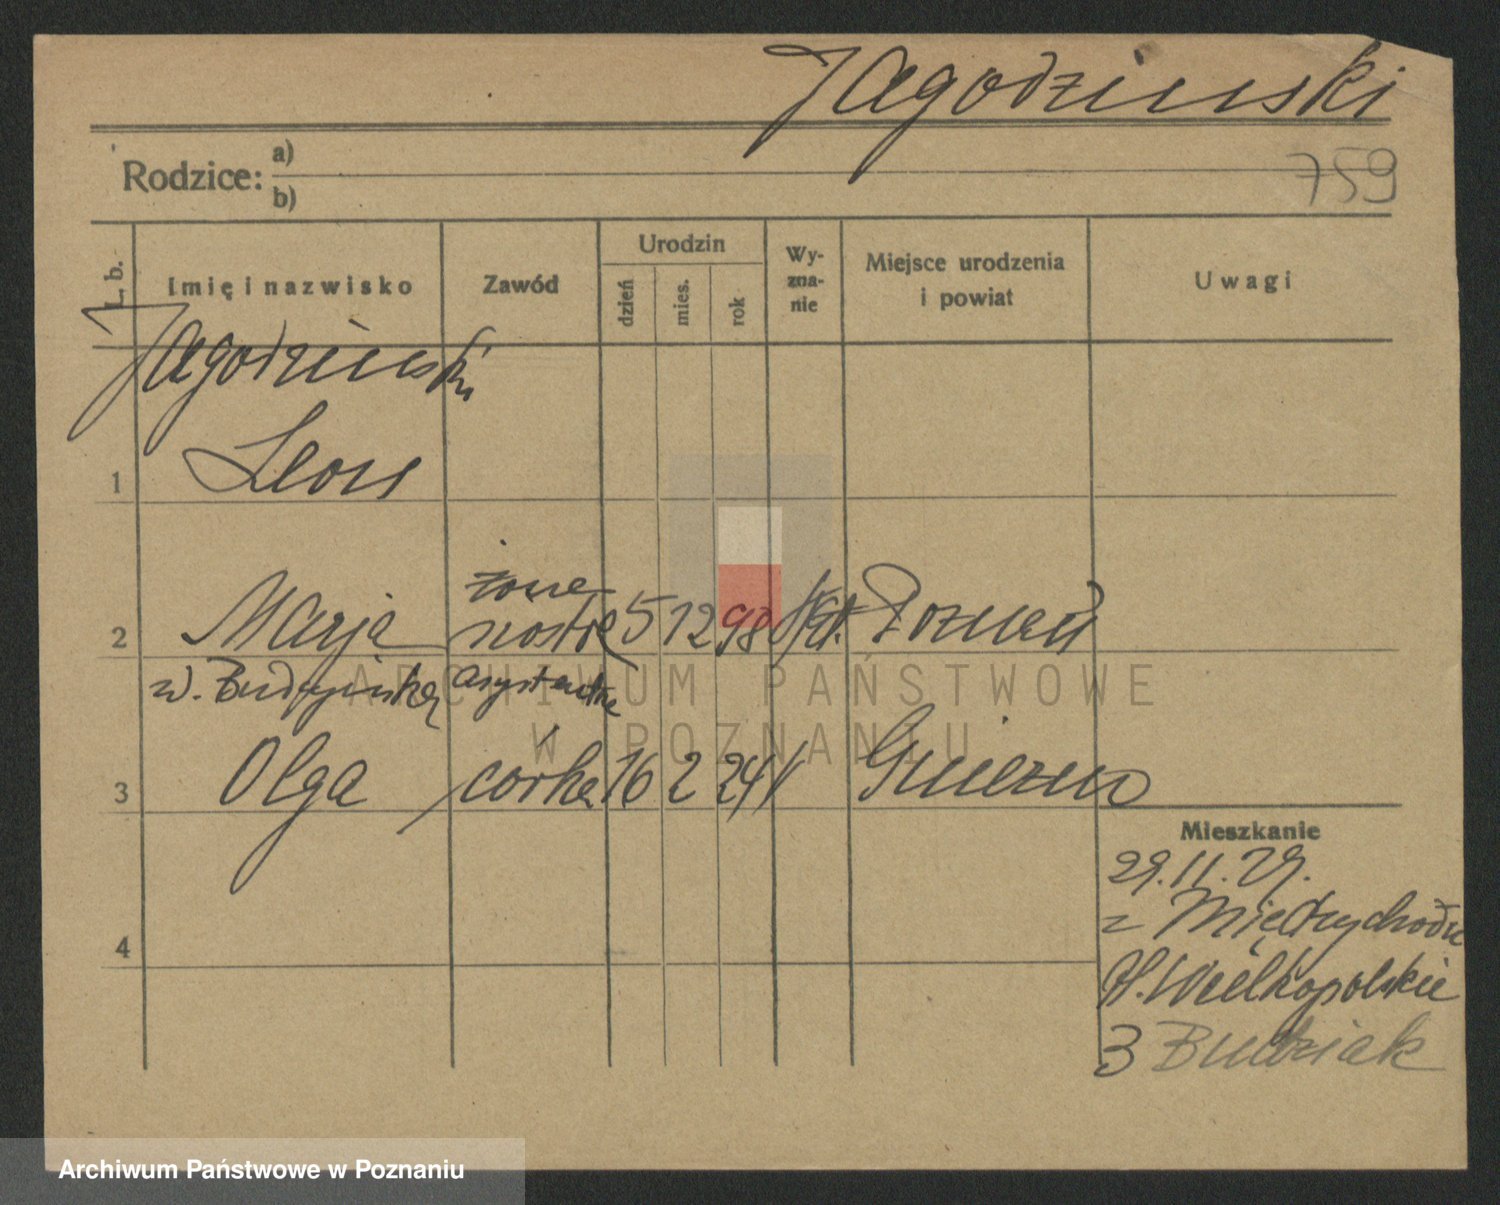 Jagodzinski
Rodzice: a)
b)
759
L. b. Imię i nazwisko Zawód Urodzin dzień mies. rok Wyznanie Miejsce urodzenia i powiat Uwagi
Jagodzinski
1 Leon
żona
2 Marja 5 12 98 Poznań
asystentka
3 Olga córka 16 2 24 Gniezno
Mieszkanie
29.11.29.
z Międzychodu
Wielkopolskie
4
3 Budziak
ARCHIWUM PAŃSTWOWE
W POZNANIU
Archiwum Państwowe w Poznaniu